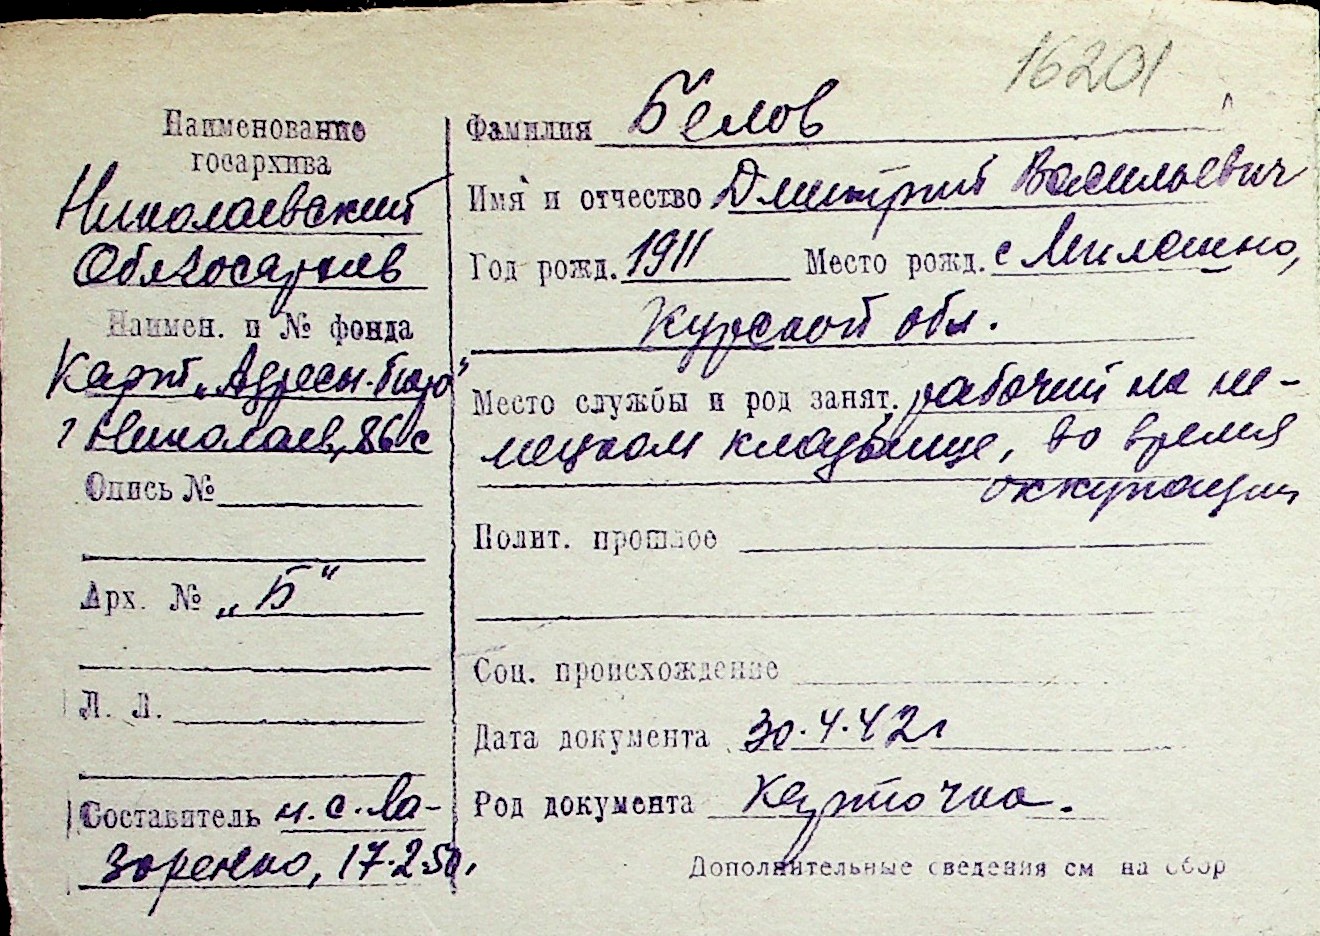 16201
Наименование
госархива
Николаевский
Облгосархив
Наимен. и № фонда
Карт „Адресн. бюро"
г Николаев, 86 с
Опись №
Арх. № „Б"
Л. Л.
Составитель н. с. Ла-
заренко, 17.2.50,
Фамилия Белов
Имя и отчество Дмитрий Васильевич
Год рожд. 1911 Место рожд. с
Курской обл.
Место службы и род занят. рабочий на не-
мецком кладбище, во время
оккупации
Полит. прошлое
Соц. происхождение
Дата документа 30.4.42г
Род документа Карточка.
Дополнительные сведения см на обор